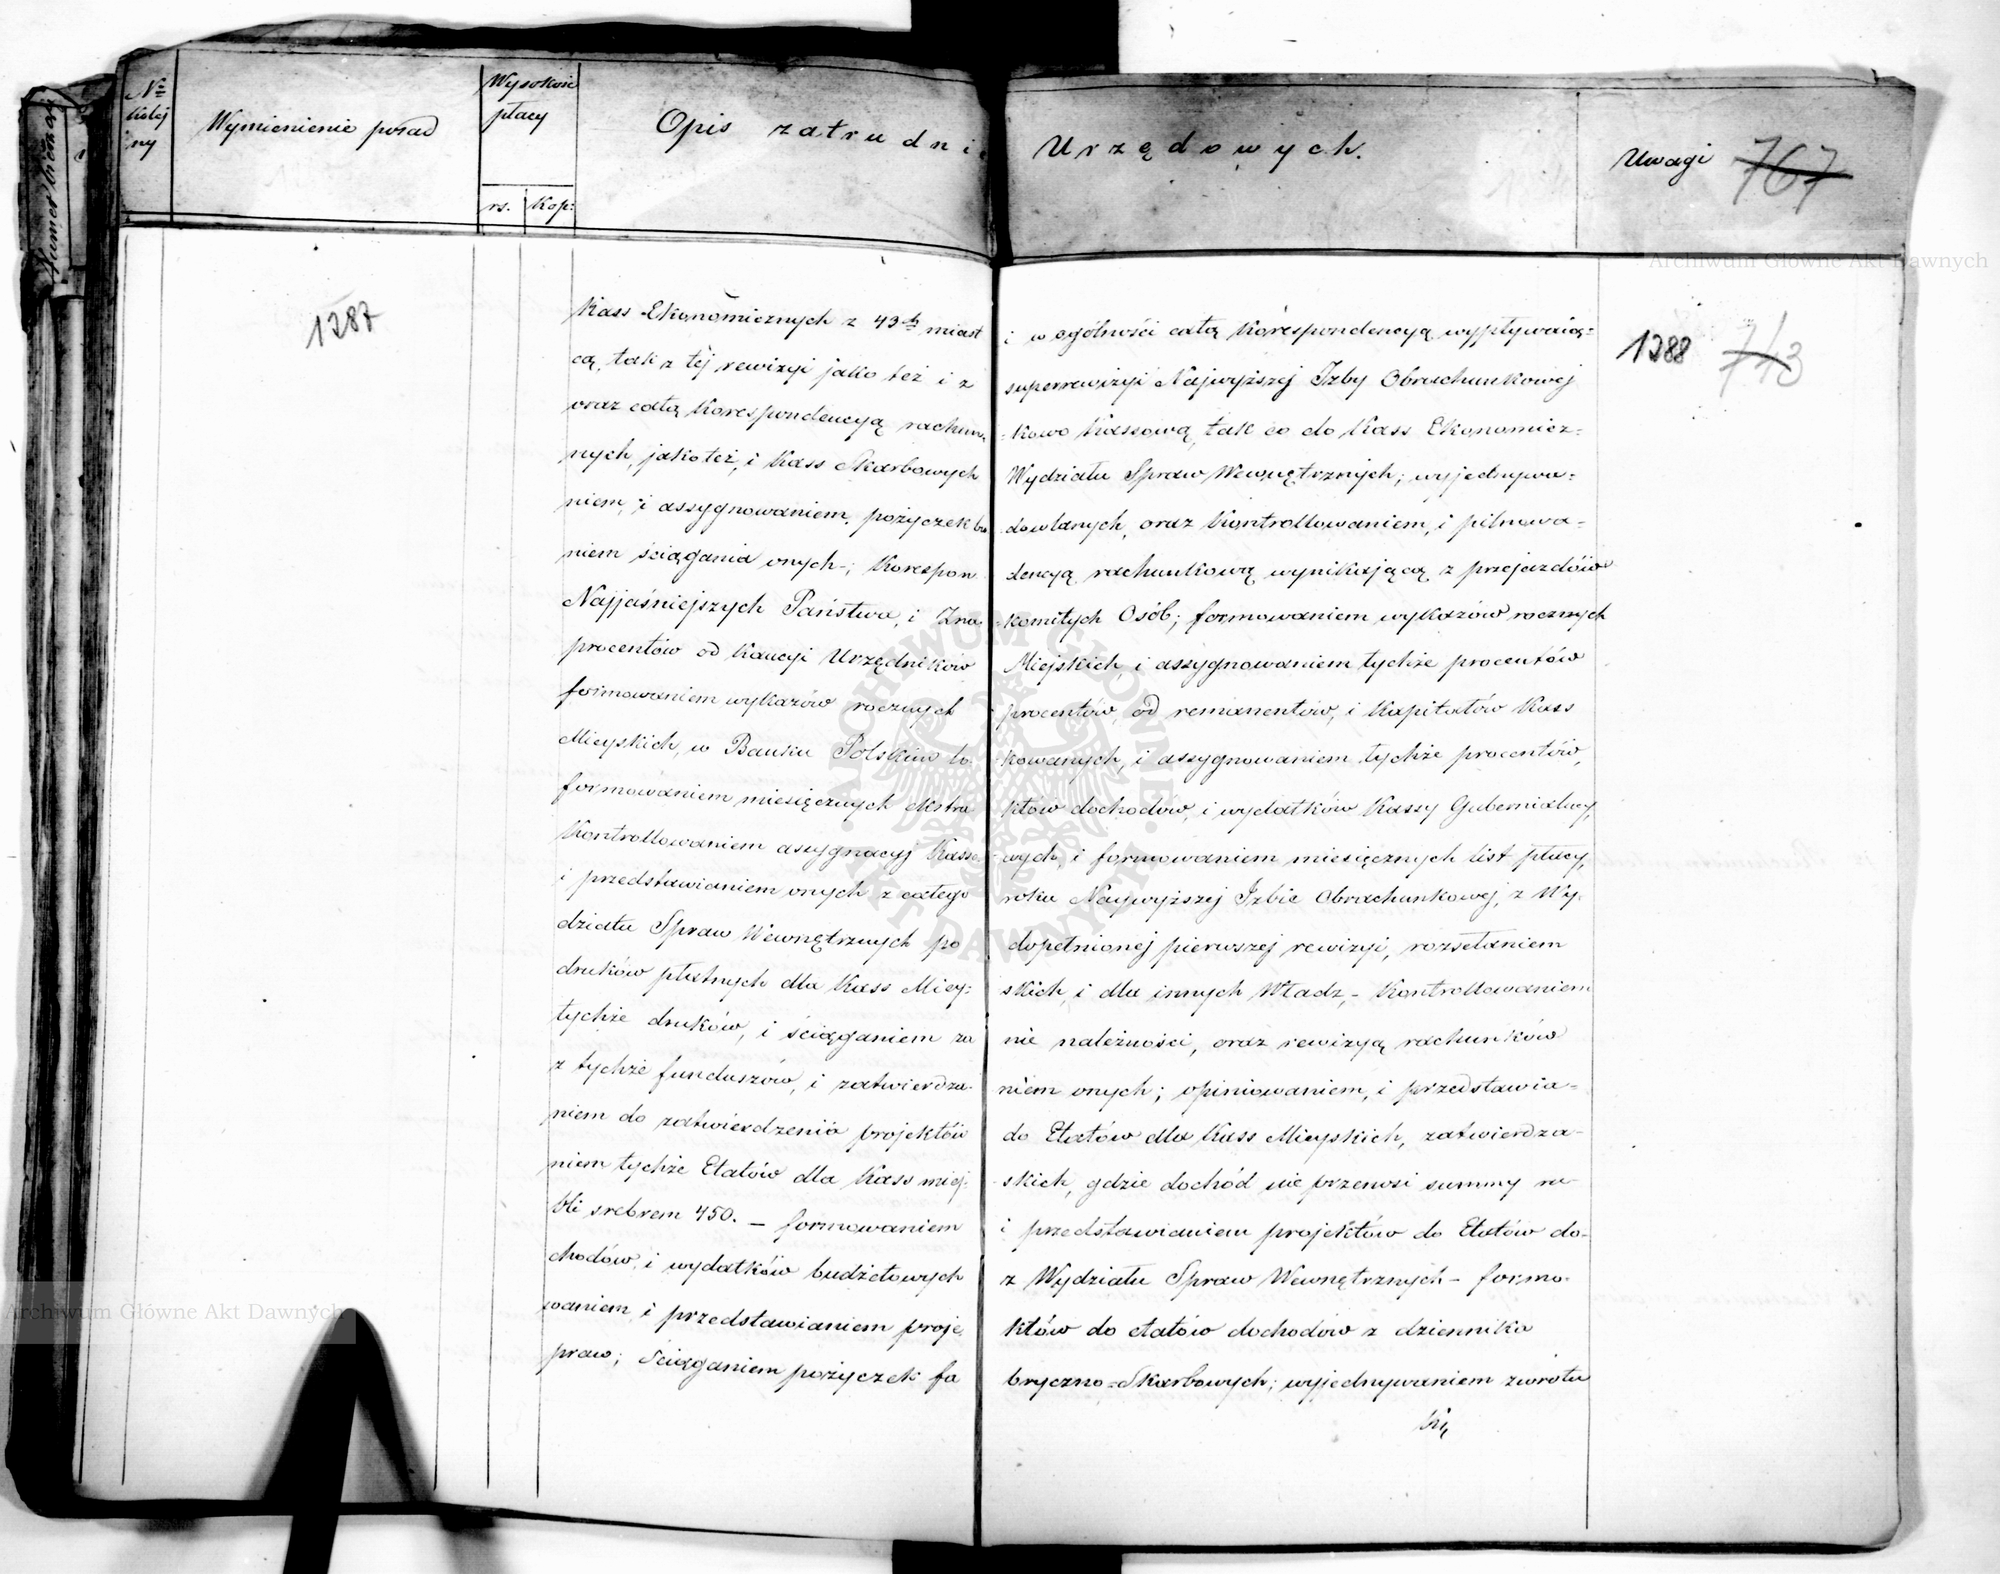 No kolej ny
Wymienienie posad
Wysokość płacy
rs. Kop:
Opis zatrudnie
Urzędowych.
Uwagi 767
1287
1288 713
Kass Ekonomicznych z 43ch miast
i w ogólności całą Korespondencyą wypływaią=
cą, tak z téj rewizyi jako też i z
superrewizyi Najwyższej Izby Obrachunkowej
oraz całą Korespondencyą rachun
=kowo Kassową, tak co do Kass Ekonomicz=
nych, jako też, i Kass Skarbowych
Wydziału Spraw Wewnętrznych; wyjednywa=
niem, i assygnowaniem, pożyczek bu
dowlanych, oraz Kontrollowaniem, i pilnowa=
niem ściągania onych-; Korespon
dencyą rachunkową wynikającą z przejazdów
Najjaśniejszych Państwa, i Zna
=komitych Osób; formowaniem wykazów rocznych
procentów od Kaucyi Urzędników
Miejskich, i assygnowaniem tychże procentów
formowaniem wykazów rocznych
procentów, od remanentów, i Kapitałów Kass
Mieyskich, w Banku Polskim lo
kowanych, i assygnowaniem tychże procentów,
formowaniem miesięcznych ekstra
któw dochodów, i wydatków Kassy Gubernialney,
Kontrollowaniem assygnacyj Kasso
wych, i formowaniem miesięcznych list płacy,
i przedstawianiem onych z całego
roku Naywyższej Izbie Obrachunkowej, z Wy
działu Spraw Wewnętrznych po
dopełnionej pierwszej rewizyi, rozsełaniem
druków płatnych dla Kass Miey=
skich, i dla innych Władz,- Kontrollowaniem
tychże druków, i ściąganiem za
nie należności, oraz rewizyą rachunków
z tychże funduszów, i zatwierdza-
niem onych; opiniowaniem, i przedstawia=
niem do zatwierdzenia projektów
do Etatów dla Kass Mieyskich, zatwierdza-
niem tychże Etatów dla Kass miej-
skich, gdzie dochód nie przenosi summy ru-
bli srebrem 450. – formowaniem
i przedstawianiem projektów do Etatów do-
chodów, i wydatków budżetowych
z Wydziału Spraw Wewnętrznych – formo-
waniem, i przedstawianiem proje
któw do etatów dochodów z dziennika
praw; ściąganiem pożyczek fa
bryczno=Skarbowych; wyjednywaniem zwrotu
Archiwum Główne Akt Dawnych
Archiwum Główne Akt Dawnych
ARCHIWUM GŁÓWNE AKT DAWNYCH